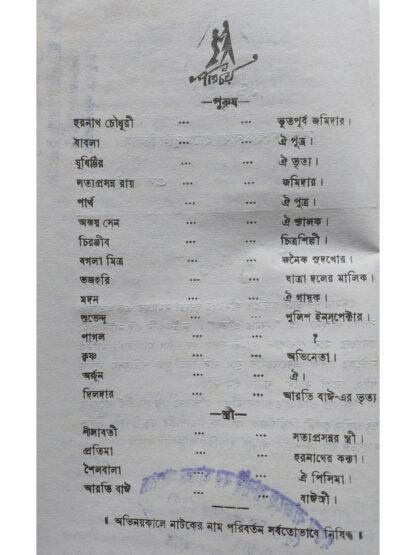 পরিচয়
—পুরুষ—
হরনাথ চৌধুরী ... ... ভূতপূর্ব জমিদার।
বাবলা ... ... ঐ পুত্র।
যুধিষ্ঠির ... ... ঐ ভৃত্য।
সত্যপ্রসন্ন রায় ... ... জমিদার।
পার্থ ... ... ঐ পুত্র।
অজয় সেন ... ... ঐ শ্যালক।
চিরঞ্জীব ... ... চিত্রশিল্পী।
বগলা মিত্র ... ... জনৈক সুদখোর।
ভজহরি ... ... যাত্রা দলের মালিক।
মদন ... ... ঐ গায়ক।
শুভেন্দু ... ... পুলিশ ইন্‌সপেক্টার।
পাগল ... ... ?
কৃষ্ণ ... ... অভিনেতা।
অর্জুন ... ... ঐ।
দিলদার ... ... আরতি বাঈ-এর ভৃত্য
—স্ত্রী—
লীলাবতী ... ... সত্যপ্রসন্নর স্ত্রী।
প্রতিমা ... ... হরনাথের কন্যা।
শৈলবালা ... ... ঐ পিসিমা।
আরতি বাঈ ... ... বাঈজী।
॥ অভিনয়কালে নাটকের নাম পরিবর্তন সর্বতোভাবে নিষিদ্ধ ॥